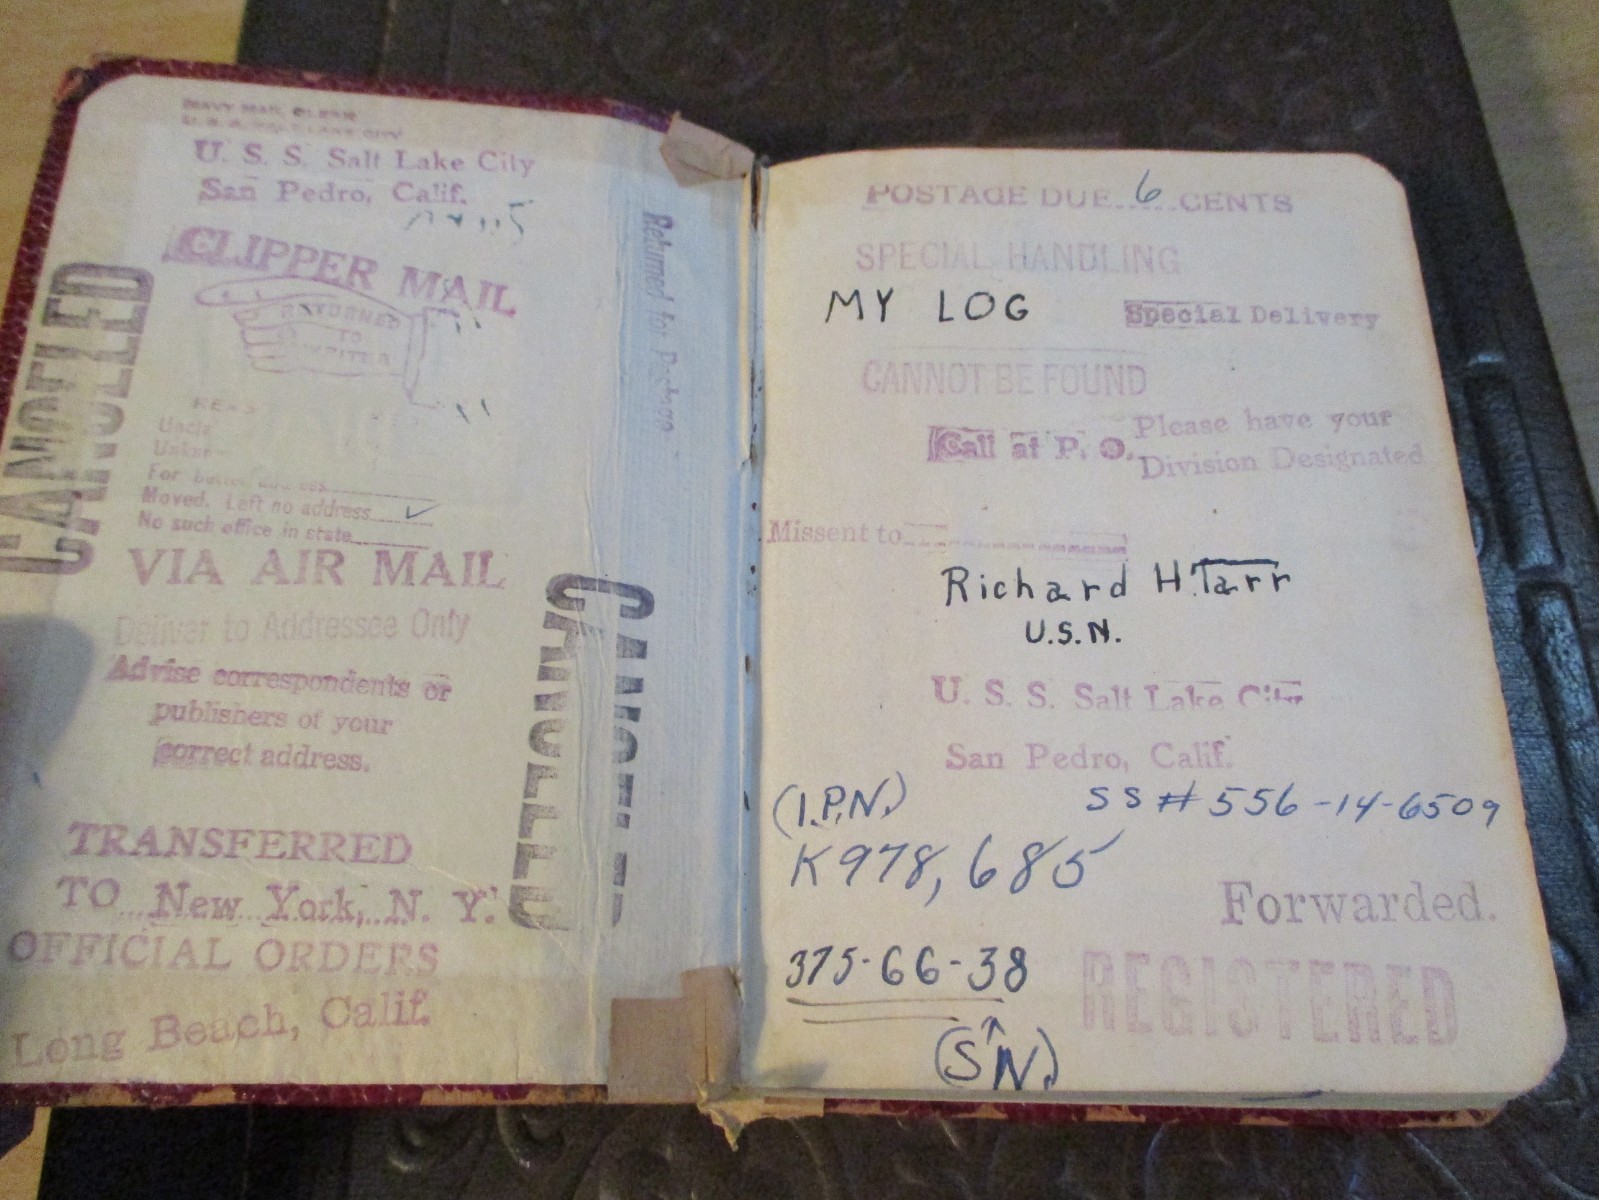 NAVY MAIL CLERK
U. S. S. SALT LAKE CITY
U. S. S. Salt Lake City
San Pedro, Calif.
CLIPPER MAIL
RETURNED
TO
WRITER
For better address
Moved. Left no address ✓
No such office in state
CANCELLED
CANCELLED
VIA AIR MAIL
Deliver to Addressee Only
Advise correspondents or
publishers of your
correct address.
TRANSFERRED
TO New York, N. Y.
OFFICIAL ORDERS
Long Beach, Calif.
Returned for Postage
CANCELLED
CANCELLED
POSTAGE DUE 6 CENTS
SPECIAL HANDLING
MY LOG
Special Delivery
CANNOT BE FOUND
Call at P. O.
Please have your
Division Designated
Missent to
Richard H. Tarr
U.S.N.
U. S. S. Salt Lake City
San Pedro, Calif.
(I.P.N.)
SS # 556-14-6509
K978,685
Forwarded.
375-66-38
REGISTERED
(SN)